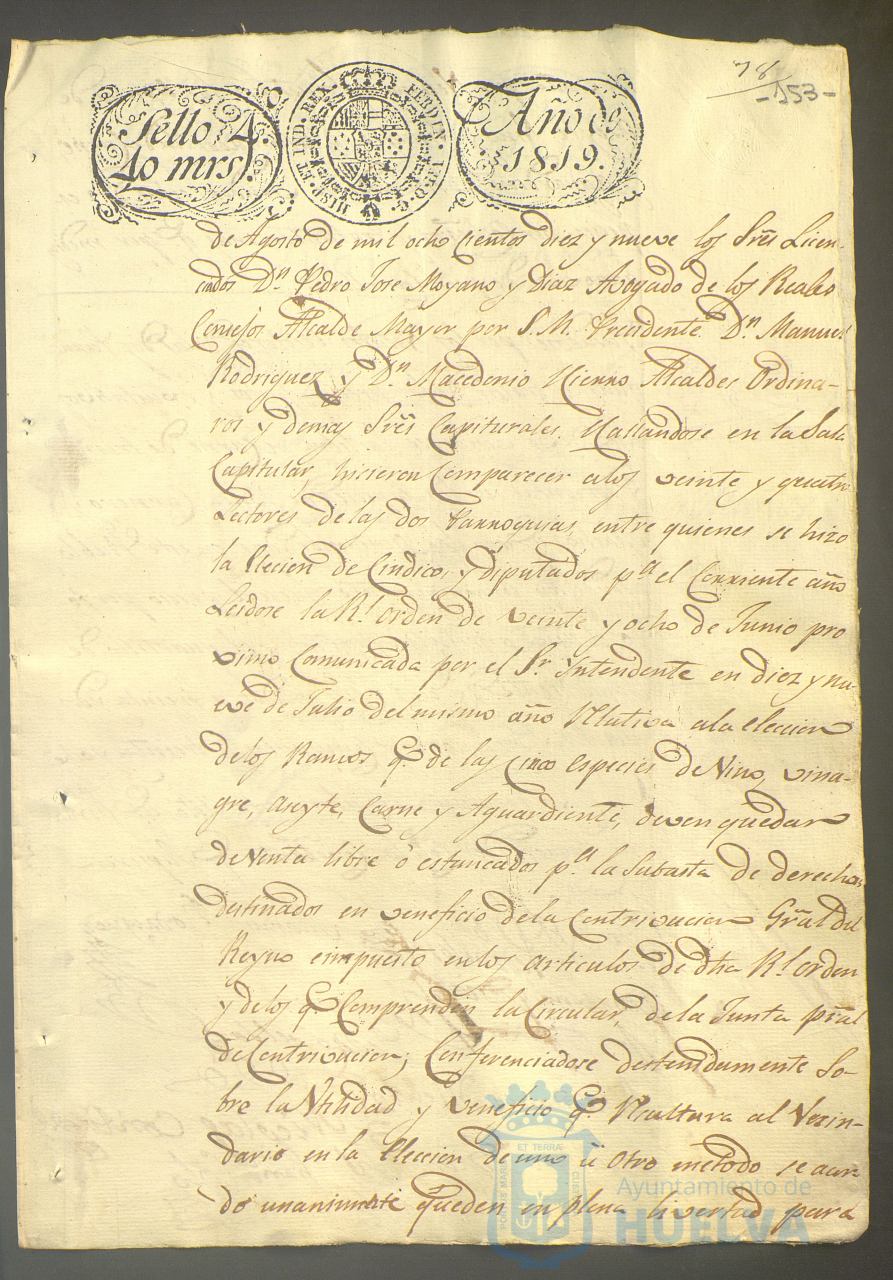 78
-153-
Sello 4.º
40 mrs.
HISP. ET IND. REX. FERDIN. VII. D. G.
Año de
1819.
de Agosto de mil ocho cientos diez y nueve los Srẽs Licen-
ciados Dn. Pedro Jose Moyano y Diaz Avogado de los Reales
Consejos Alcalde Mayor por S. M. Presidente Dn. Manuel
Rodriguez y Dn. Macedonio Hierro Alcaldes Ordina-
ros y demas Srẽs Capiturales, Hallandose en la Sala
Capitular, hicieron Comparecer alos veinte y quatro
Lectores de las dos Parroquias, entre quienes se hizo
la Elecion de Cindico, y diputados pa. el Corriente año
Leidose la Rl. orden de veinte y ocho de Junio pro
ximo Comunicada por el Sr. Intendente en diez y nu-
eve de Julio del mismo año Relativa ala eleccion
de los Ramos q. de las cinco especies de Vino, vina-
gre, aseyte, Carne y Aguardiente, deven quedar
de Venta libre ô estancados pa. la Subasta de derechos
destinados en veneficio de la Contrivucion Grãl del
Reyno eimpuesto en los articulos de dha Rl. orden
y delos q. Comprenden la Circular, de la Junta prãl
de Contrivucion; Conferenciadose destenidamente So-
bre la Utilidad y veneficio q. Resultara al Vezin-
dario en la Eleccion de uno û otro metodo se acor-
do unanimte. queden en plena livertad para
ET TERRÆ
Ayuntamiento de
HUELVA